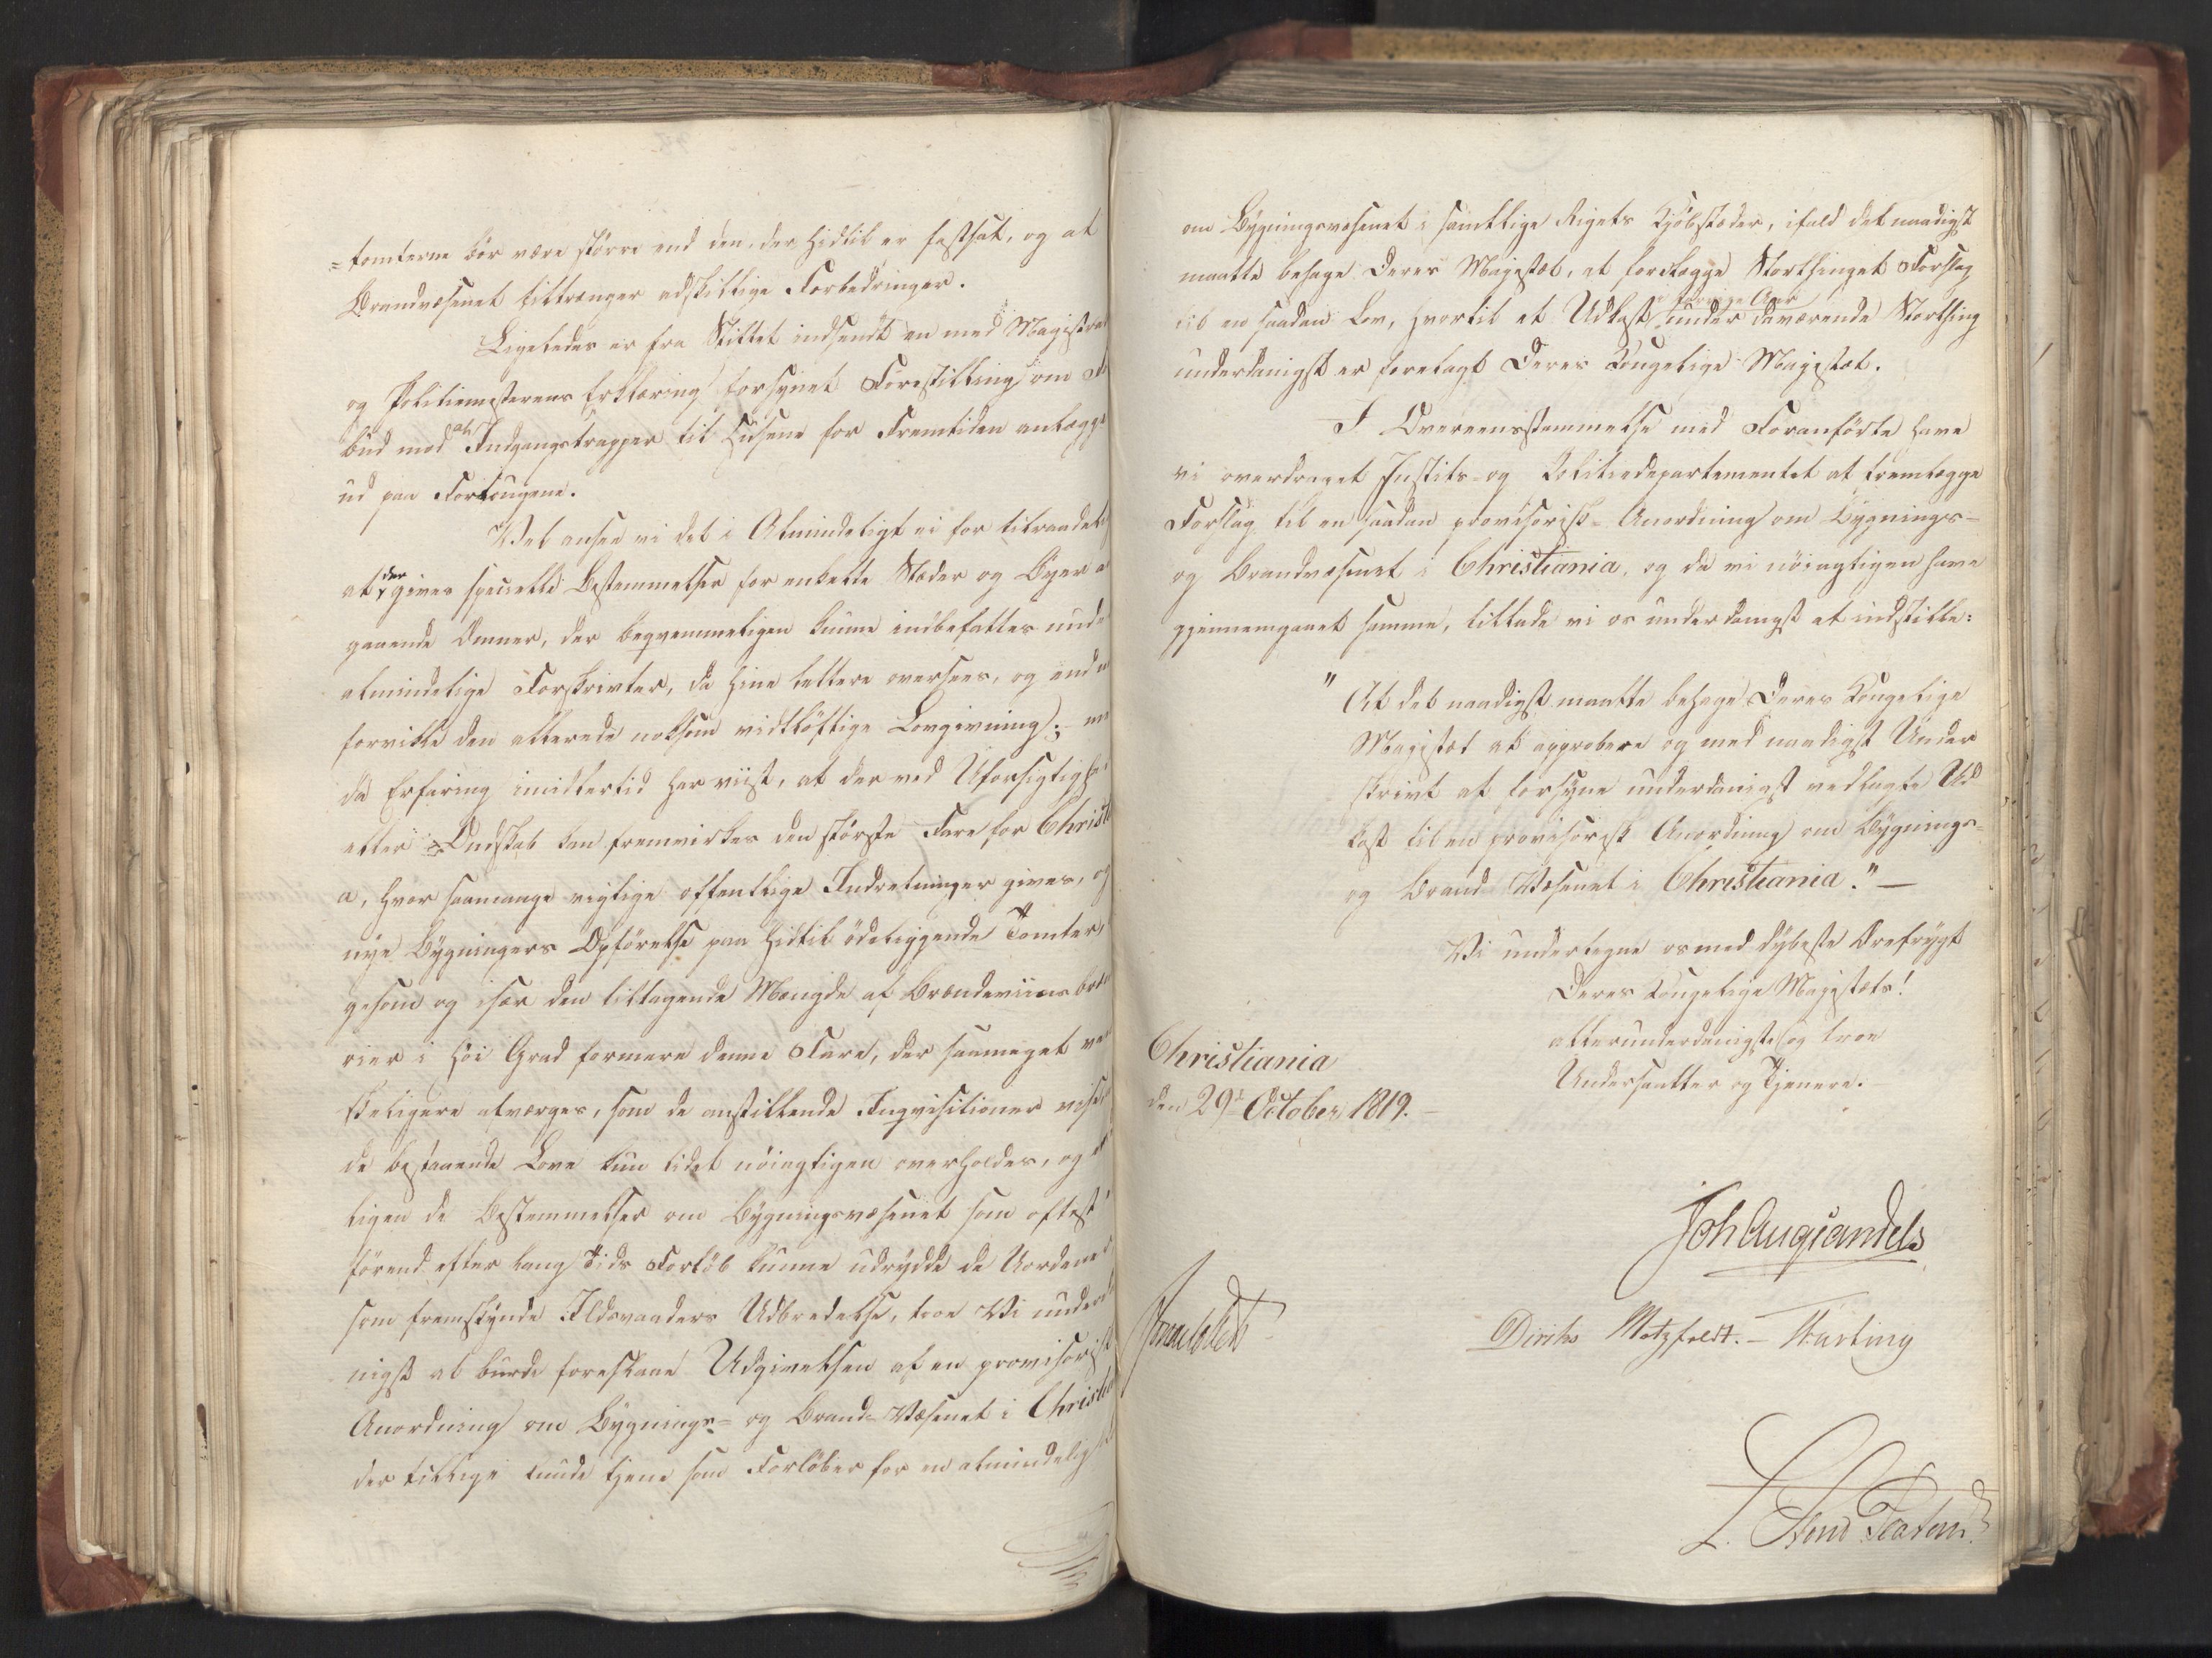 =tomterne bör være större end den, der hidtil er fastsat, og at
Brandvæsenet tiltrænger adskillige Forbedringer.
Ligeledes er fra Stiftet indsendt en med Magistra
og Politiemesterens Erklæring forsynet Forestilling om
bud mod at Indgangstrapper til Husene for Fremtiden anlægge
ud paa Fortougene.
Vel ansee vi det i Almindeligt ei for tilraadeli
at der gives specielle Bestemmelser for enkelte Stæder og Byer
gaaende Emner, der beqvemmeligen kunne indbefattes unde
almindelige Forskrivter, da hine lettere oversees, og end
forvikle den allerede noksom vidtlöftige Lovgivning; me
da Erfaring imidlertid har viist, at der ved Uforsigtighe
eller Ondskab kan fremvirkes den störste Fare for Christi
a, hvor saamange vigtige offentlige Indretninger gives, og
nye Bygningers Opförelse paa hidtil ödeliggende Tomter,
gesom og især den tiltagende Mængde af Brændeviinsbræn
rier i höi Grad formere denne Fare, der saameget va
skeligere afværges, som de anstillende Inqvisitioner vise
de bestaaende Love kun lidet nöiagtigen overholdes, og
ligen de Bestemmelser om Bygningsvæsenet som oftest
förend efter lang Tids Forlöb kunne udrydde de Uordene
som fremskynde Ildsvaaders Udbredelse, troe Vi underd
nigst at burde foreslaae Udgivelsen af en provisorisk
Anordning om Bygnings- og Brand-Væsenet i Christia
der tillige kunde tjene som Forlöber for en almindelig
om Bygningsvæsenet i samtlige Rigets Kjöbstæder, ifald det naadigst
maatte behage Deres Majestæt, at forelægge Storthinget Forslag
til en saadan Lov, hvortil et Udkast i forrige Aar under daværende Storthing
underdanigst er forelagt Deres Kongelige Majestæt.
I Overeensstemmelse med Foranförte have
vi overdraget Justits- og Politiedepartementet at fremlægge
Forslag til en saadan provisorisk Anordning om Bygnings-
og Brandvæsenet i Christiania, og da vi nöiagtigen have
gjennemgaaet samme, tillade vi os underdanigst at indstille:
"At det naadigst maatte behage Deres Kongelige
Majestæt at approbere og med naadigst Under
skrivt at forsyne underdanigst vedlagte Ud
kast til en provisorisk Anordning om Bygnings-
og Brand Væsenet i Christiania." —
Vi undertegne os med dybeste Ærefrygt
Deres Kongelige Majestæts!
allerunderdanigste og troe
Undersaatter og Tjenere.
Christiania
den 29de October 1819. —
Joh Aug Sandels
Diriks Motzfeldt. — Hartting